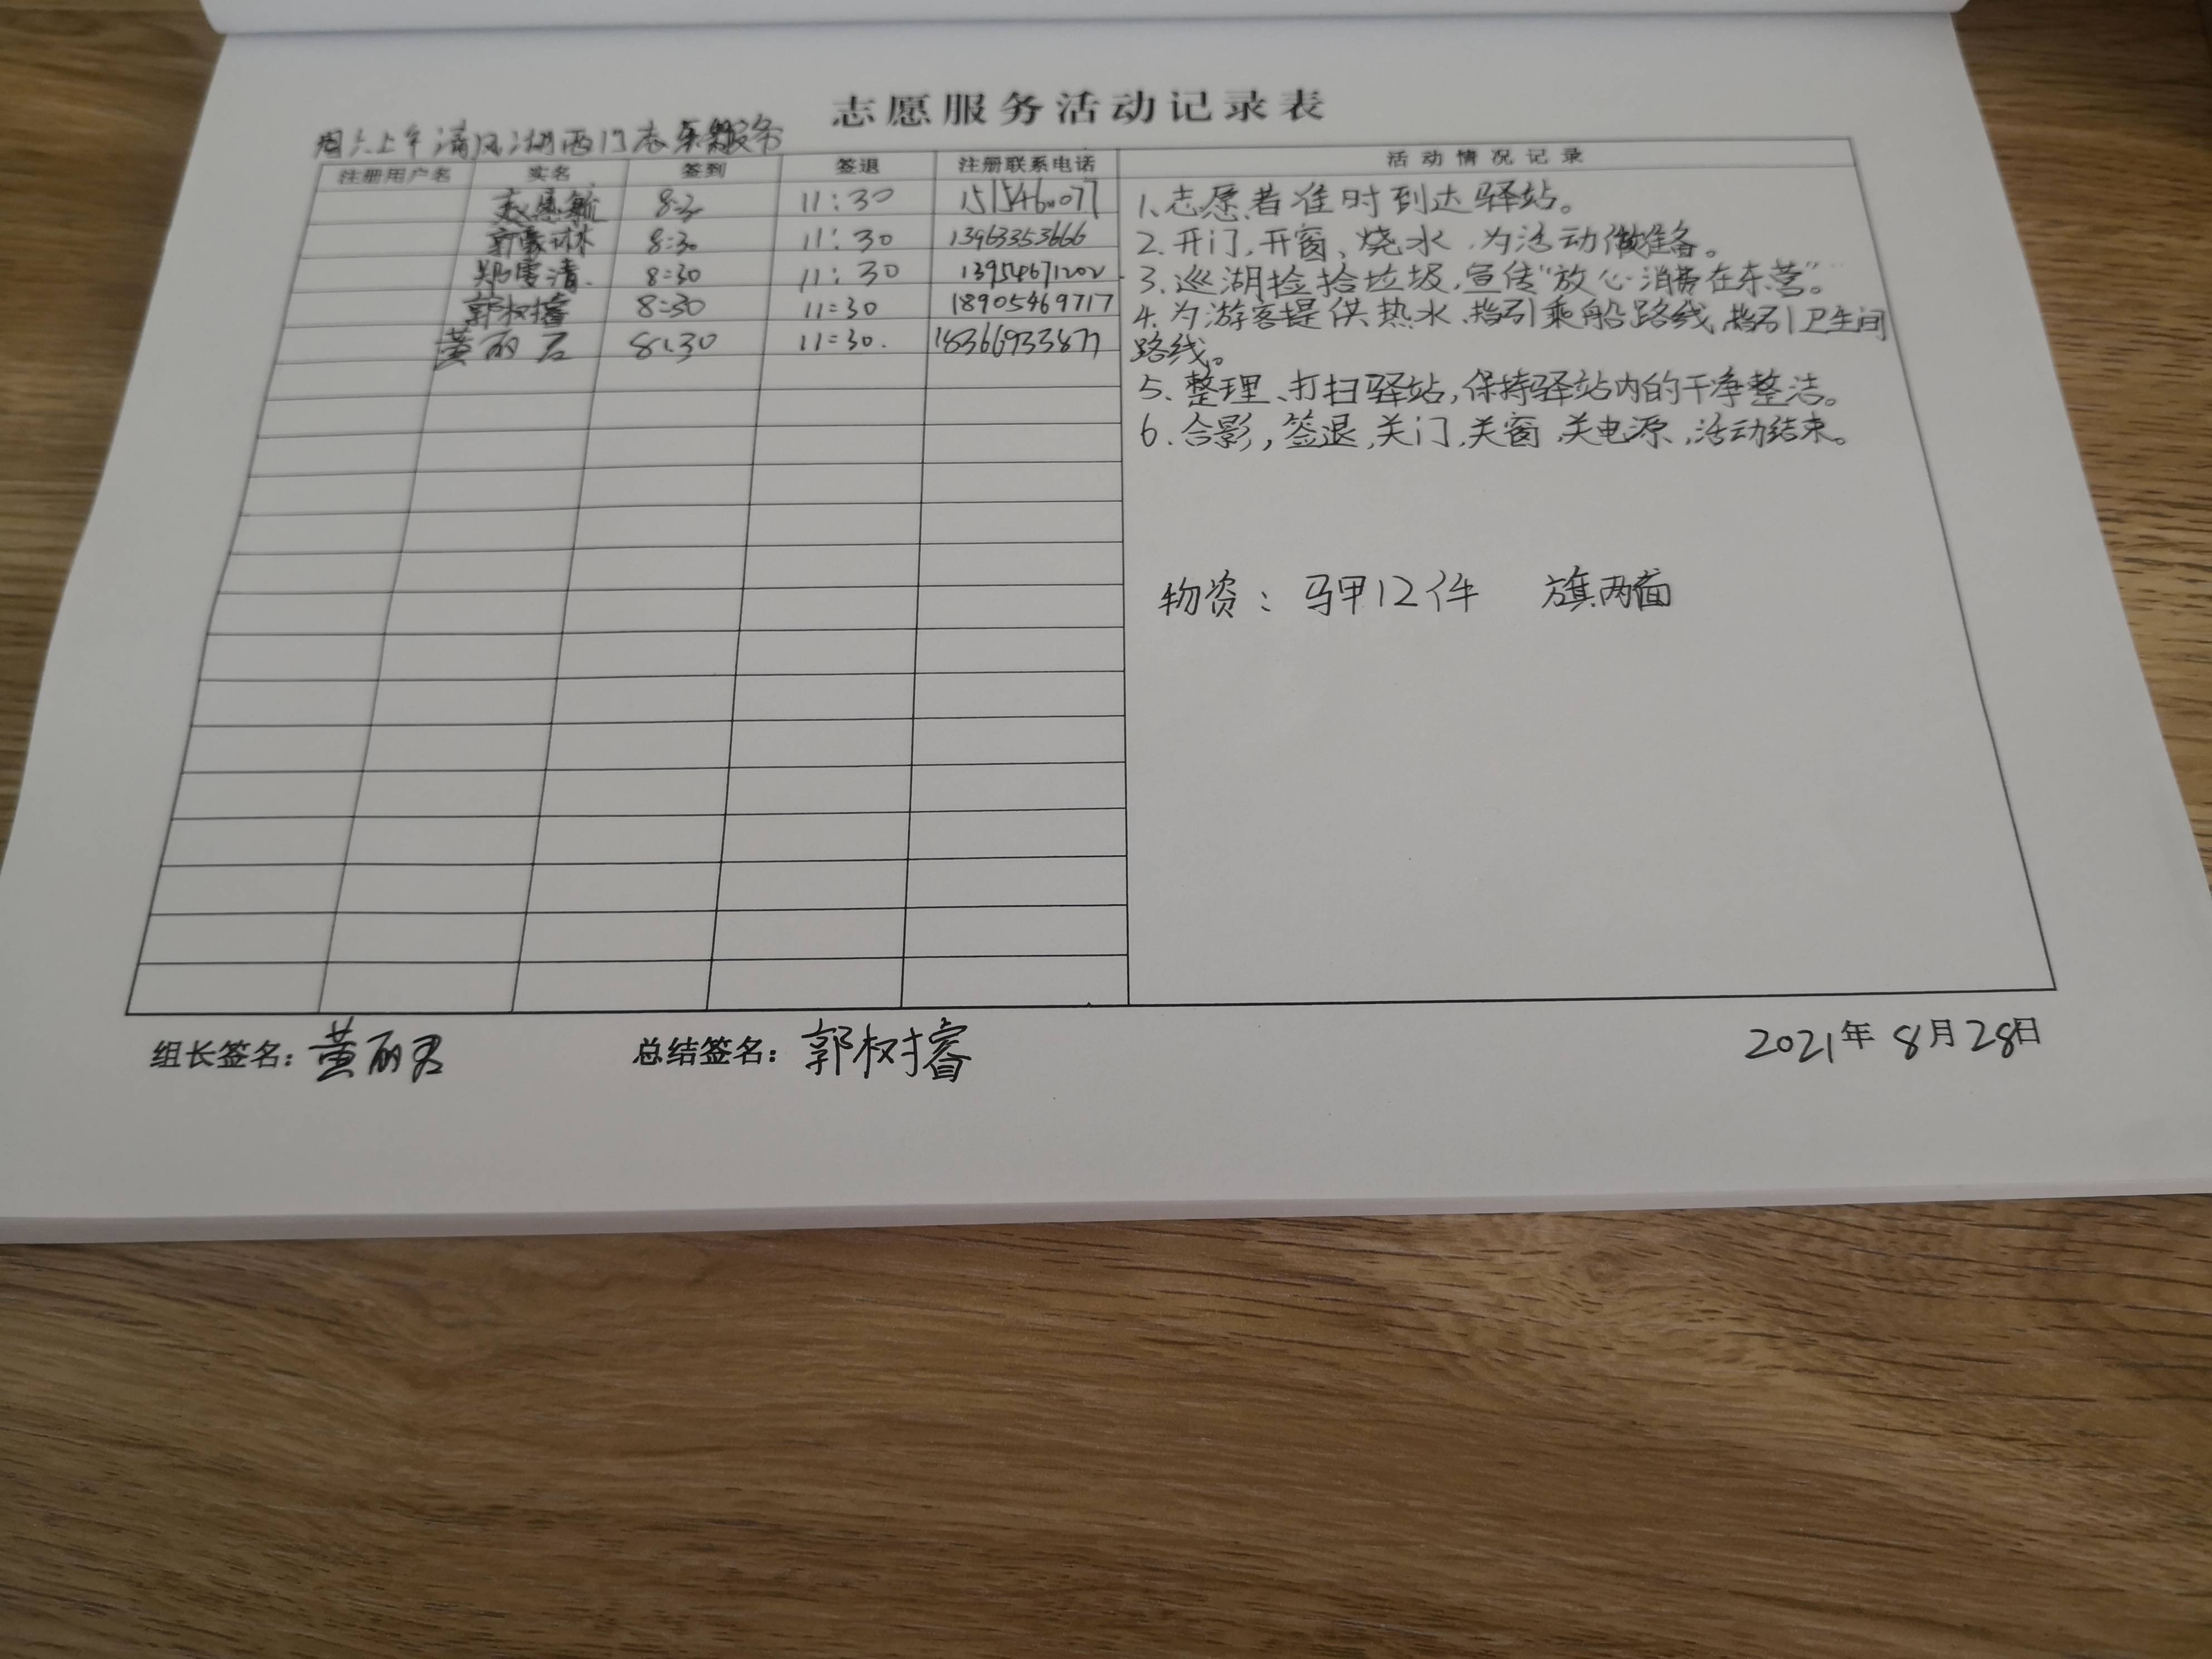 志愿服务活动记录表
周六上午清风湖西门志愿服务
注册用户名 实名 签到 签退 注册联系电话 活动情况记录
8:30 11:30
8:30 11:30 13963353666
郑雯清 8:30 11:30 13954671202
郭树睿 8:30 11:30 18905469717
黄丽君 8:30 11:30. 18366933877
1、志愿者准时到达驿站。
2、开门,开窗、烧水,为活动做准备。
3、巡湖捡拾垃圾,宣传“放心消费在东营”。
4、为游客提供热水,指引乘船路线,指引卫生间
路线。
5、整理、打扫驿站,保持驿站内的干净整洁。
6、合影,签退,关门,关窗,关电源,活动结束。
物资：马甲12件 旗两面
组长签名：黄丽君 总结签名：郭树睿 2021年8月28日